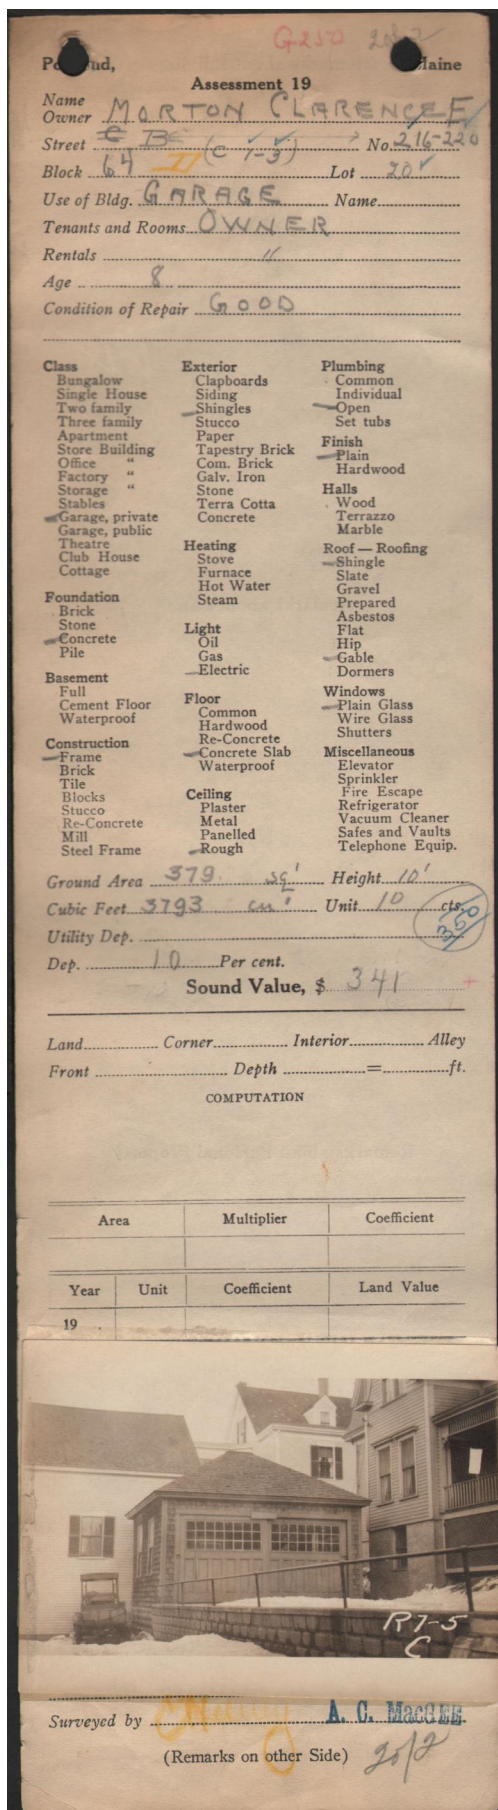 G250 2 of 2
Maine
Assessment 19
Name
Owner MORTON CLARENCE E
Street C (C 1-3) No. 216-220
Block 64 D Lot 20
Use of Bldg. GARAGE Name
Tenants and Rooms OWNER
Rentals "
Age 8
Condition of Repair GOOD
Class
Bungalow
Single House
Two family
Three family
Apartment
Store Building
Office "
Factory "
Storage "
Stables
Garage, private
Garage, public
Theatre
Club House
Cottage
Foundation
Brick
Stone
Concrete
Pile
Basement
Full
Cement Floor
Waterproof
Construction
Frame
Brick
Tile
Blocks
Stucco
Re-Concrete
Mill
Steel Frame
Exterior
Clapboards
Siding
Shingles
Stucco
Paper
Tapestry Brick
Com. Brick
Galv. Iron
Stone
Terra Cotta
Concrete
Heating
Stove
Furnace
Hot Water
Steam
Light
Oil
Gas
Electric
Floor
Common
Hardwood
Re-Concrete
Concrete Slab
Waterproof
Ceiling
Plaster
Metal
Panelled
Rough
Plumbing
Common
Individual
Open
Set tubs
Finish
Plain
Hardwood
Halls
Wood
Terrazzo
Marble
Roof — Roofing
Shingle
Slate
Gravel
Prepared
Asbestos
Flat
Hip
Gable
Dormers
Windows
Plain Glass
Wire Glass
Shutters
Miscellaneous
Elevator
Sprinkler
Fire Escape
Refrigerator
Vacuum Cleaner
Safes and Vaults
Telephone Equip.
Ground Area 379 sq' Height 10'
Cubic Feet 3793 cu' Unit 10 cts.
350
Utility Dep.
Dep. 10 Per cent.
Sound Value, $ 341
Land Corner Interior Alley
Front Depth = ft.
COMPUTATION
Area Multiplier Coefficient
Year Unit Coefficient Land Value
19
R7-5
C
Surveyed by A. C. MacGEE
(Remarks on other Side) 2 of 2